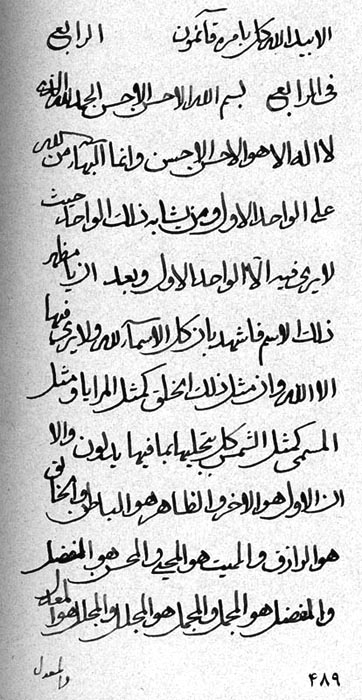 الا بيد الله كل بامره قآئمون الرابع
فى الرابع بسم الله الاحسن الاحسن الحمد لله الذى
لا اله الا هو الاحسن الاحسن وانما البهآء من الله
على الواحد الاول ومن يشابه ذلك الواحد حيث
لا يرى فيه الا الواحد الاول وبعد ان يا مظهر
ذلك الاسم فاشهد بان كل الاسمآء لله ولا يرى فيها
الا الله وان مثل ذلك الخلق كمثل المرايا ومثل
المسمى كمثل الشمس كل بتجليها بما فيها يدلون والا
ان الاول هو الاخر والظاهر هو الباطن والخالق
هو الرازق والمميت هو المحيى والمحسن هو المفضل
والمفضل هو المجمل والمجمل هو المجلل والمجلل هو المعدل
والمعدل
۴۸۹